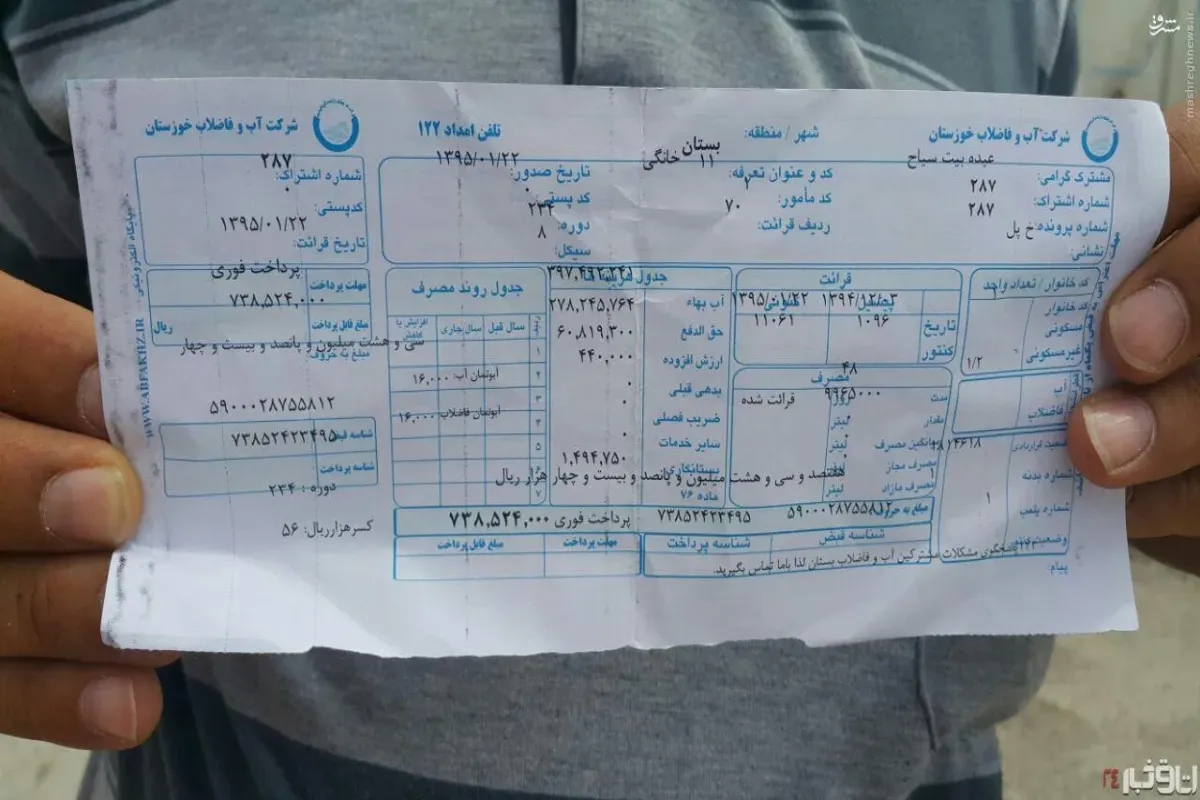 مشرق
mashreghnews.ir
شرکت آب و فاضلاب خوزستان
شهر / منطقه: بستان
تلفن امداد ۱۲۲
مشترک گرامی: عبده بیت سیاح
کد و عنوان تعرفه: ۱۱ خانگی
تاریخ صدور: ۱۳۹۵/۰۱/۲۲
شماره اشتراک: ۲۸۷
کد مأمور: ۲
کد پستی: ۰
شماره پرونده: ۲۸۷
ردیف قرائت: ۷۰
دوره: ۲۳۴
نشانی: خ پل
سیکل: ۸
کد خانوار / تعداد واحد
کد خانوار
مسکونی
غیرمسکونی
۱/۲
آب
فاضلاب
شماره بدنه
شماره پلمپ
۱
پیام:
قرائت
۱۳۹۵/۰۱/۲۲
تاریخ
کنتور
۱۰۹۶
۱۱۰۶۱
مصرف
مدت ۴۸
مقدار لیتر ۹۹۶۵۰۰۰ قرائت شده
میانگین مصرف لیتر
مصرف مجاز لیتر
مصرف مازاد لیتر
جدول هزینه ها
۳۹۷,۴۶۲,۲۴۱
آب بهاء ۲۷۸,۲۴۵,۷۶۴
حق الدفع ۶۰,۸۱۹,۳۰۰
ارزش افزوده ۴۴۰,۰۰۰
بدهی قبلی ۰
ضریب فصلی ۰
سایر خدمات
بستانکاری ۱,۴۹۴,۷۵۰
ماده ۷۶
هفتصد و سی و هشت میلیون و پانصد و بیست و چهار هزار ریال
مبلغ به حروف
جدول روند مصرف
ردیف
سال قبل
سال جاری
افزایش یا کاهش
۱
۲
آبونمان آب: ۱۶,۰۰۰
۳
۴
آبونمان فاضلاب: ۱۶,۰۰۰
۵
۷
۵۹۰۰۰۲۸۷۵۵۸۱۲
۷۳۸۵۲۴۲۳۴۹۵
پرداخت فوری ۷۳۸,۵۲۴,۰۰۰
شناسه قبض
شناسه پرداخت
مهلت پرداخت
مبلغ قابل پرداخت
پاسخگوی مشکلات مشترکین آب و فاضلاب بستان لذا باما تماس بگیرید.
شرکت آب و فاضلاب خوزستان
شماره اشتراک: ۲۸۷
کدپستی: ۰
تاریخ قرائت: ۱۳۹۵/۰۱/۲۲
مهلت پرداخت پرداخت فوری
مبلغ قابل پرداخت ۷۳۸,۵۲۴,۰۰۰ ریال
سی و هشت میلیون و پانصد و بیست و چهار
مبلغ به حروف
شناسه قبض ۵۹۰۰۰۲۸۷۵۵۸۱۲
شناسه پرداخت ۷۳۸۵۲۴۲۳۴۹۵
دوره : ۲۳۴
کسرهزارریال: ۵۶
WWW.ABFAKHZ.IR